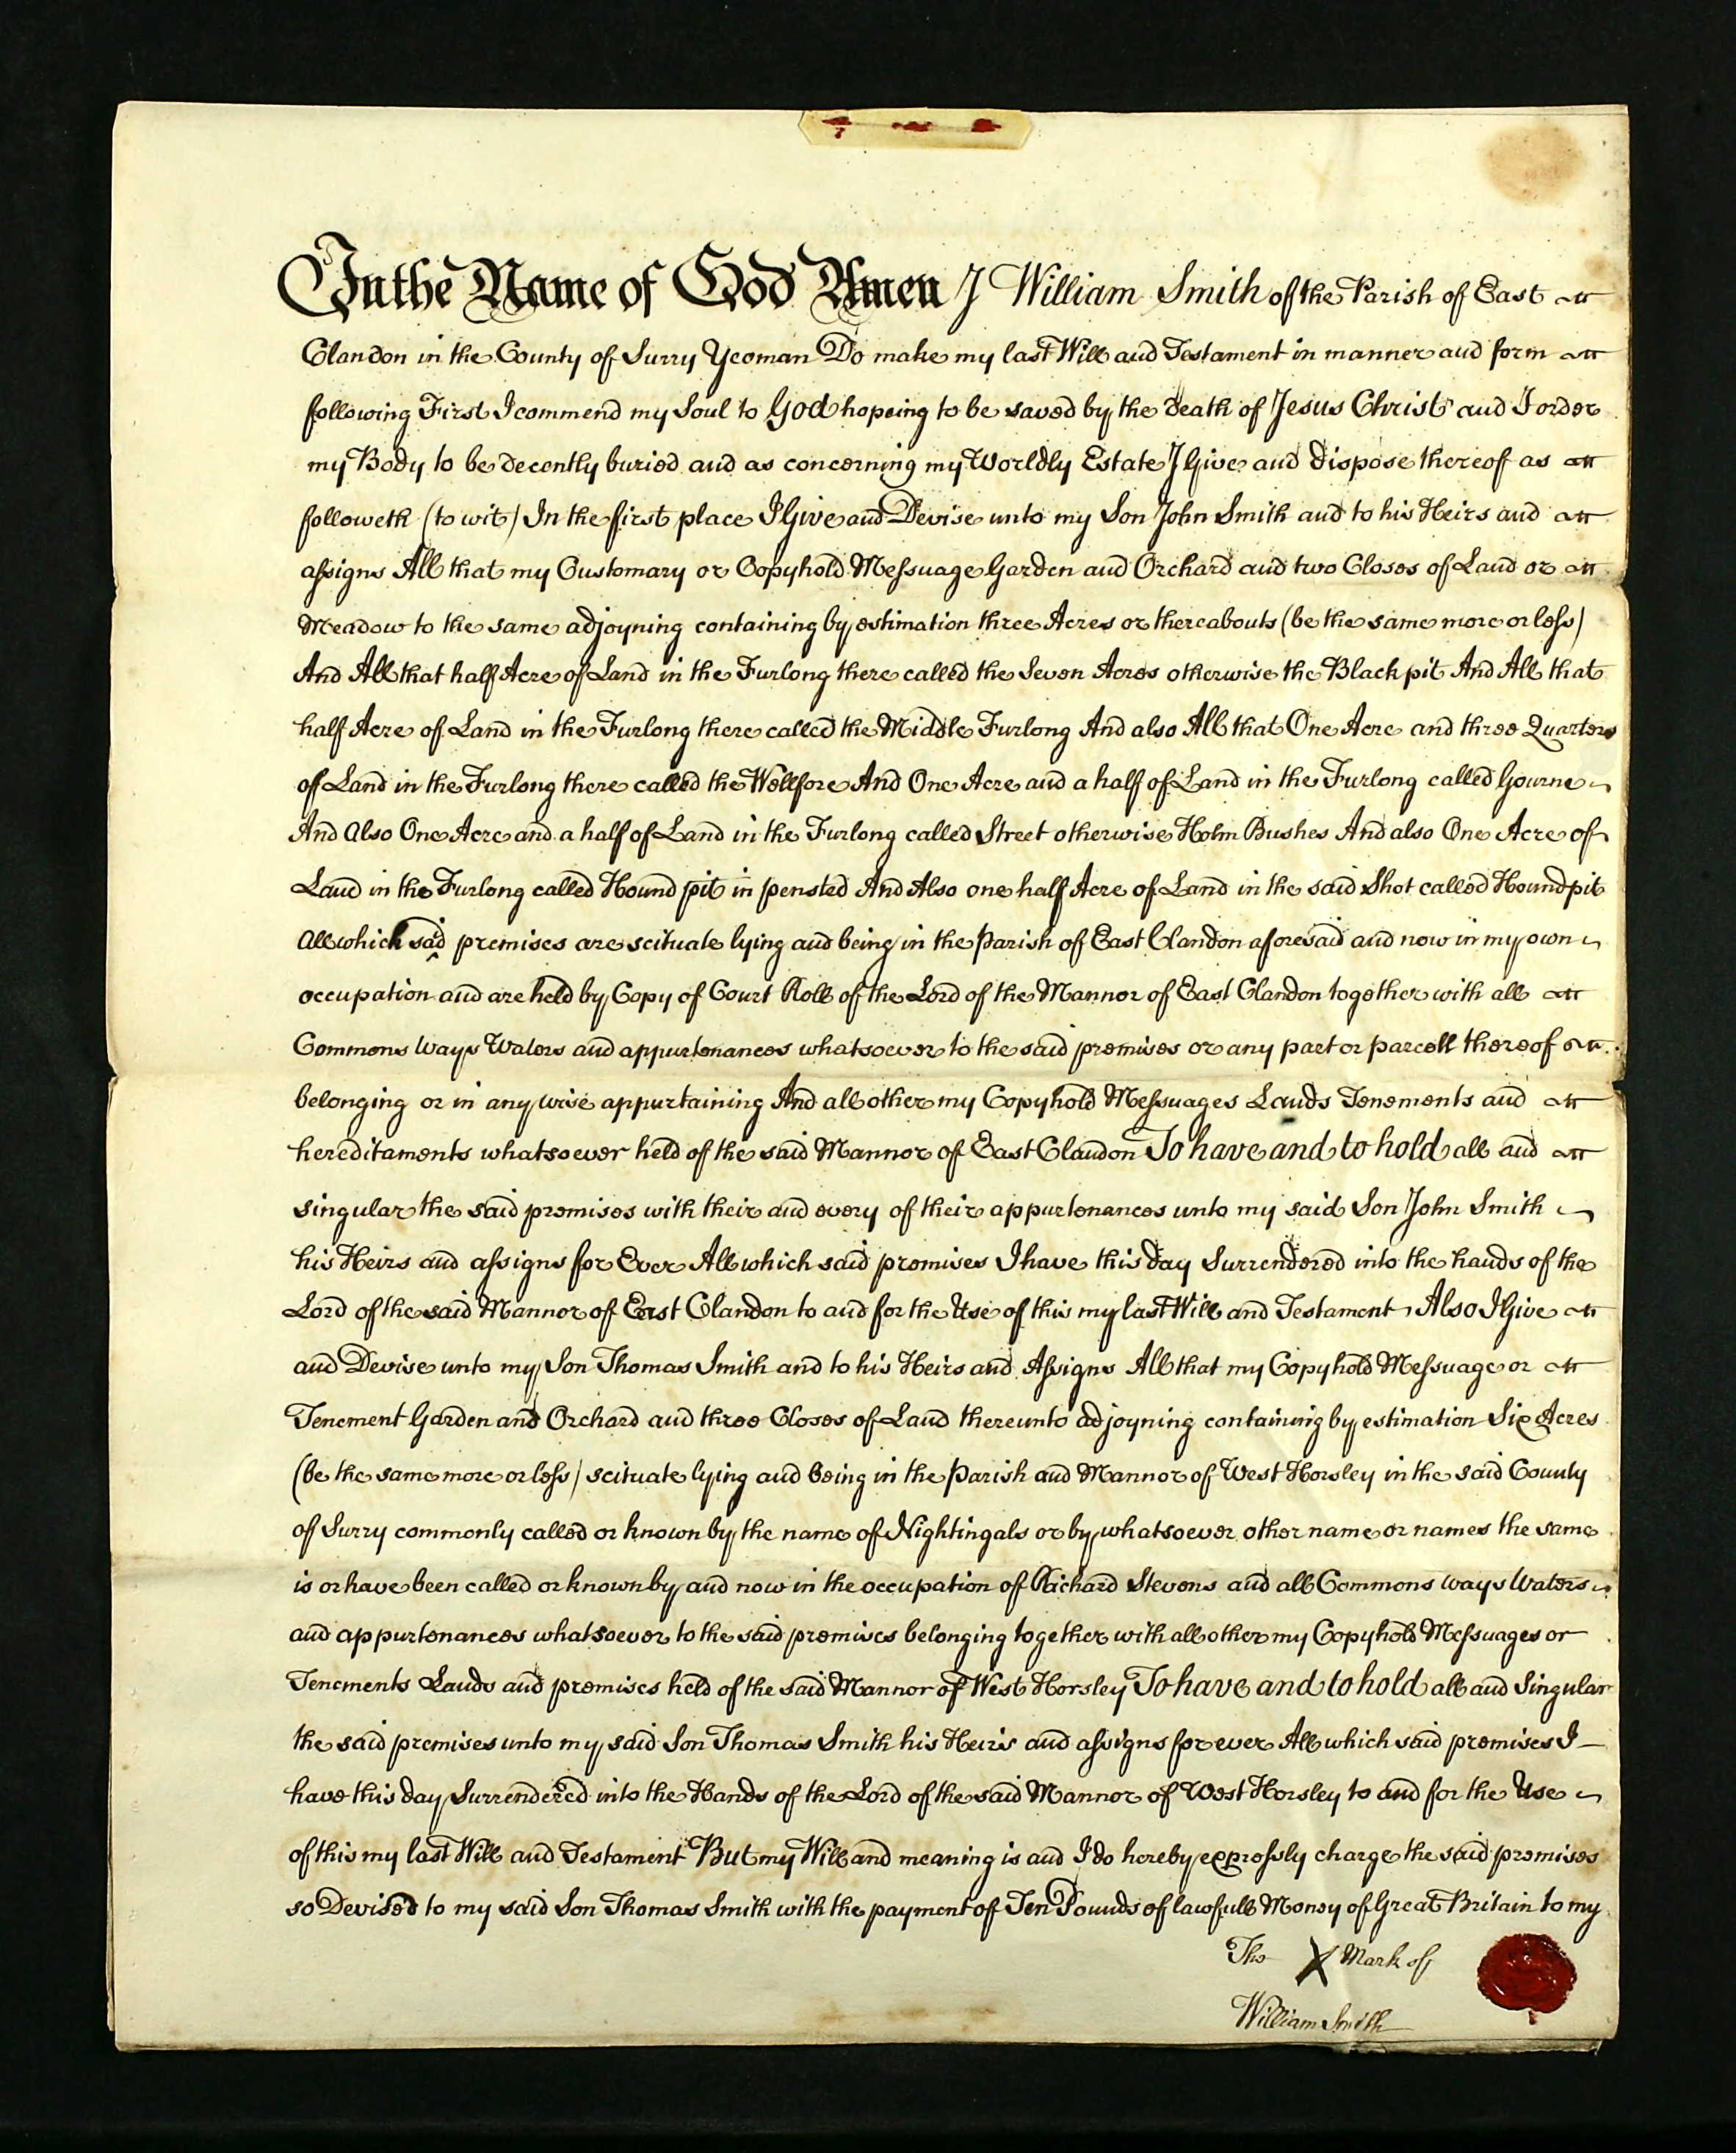 In the Name of God Amen I William Smith of the Parish of East
Clandon in the County of Surry Yeoman Do make my last Will and Testament in manner and form
following First I commend my Soul to God hopeing to be saved by the death of Jesus Christ and I order
my Body to be decently buried and as concerning my Worldly Estate I Give and dispose thereof as
followeth (to wit) In the first place I Give and Devise unto my Son John Smith and to his Heirs and
assigns All that my Customary or Copyhold Messuage Garden and Orchard and two Closes of Land or
Meadow to the same adjoyning containing by estimation three Acres or thereabouts (be the same more or less)
And All that half Acre of Land in the Furlong there called the Seven Acres otherwise the Black pit And All that
half Acre of Land in the Furlong there called the Middle Furlong And also All that One Acre and three Quarters
of Land in the Furlong there called the Wellfore And One Acre and a half of Land in the Furlong called Gourne
And also One Acre and a half of Land in the Furlong called Street otherwise Holm Bushes And also One Acre of
Land in the Furlong called Hound pit in pensted And Also one half Acre of Land in the said Shot called Houndpit
All which said premises are scituate lying and being in the Parish of East Clandon aforesaid and now in my own
occupation and are held by Copy of Court Roll of the Lord of the Mannor of East Clandon together with all
Commons Ways Waters and appurtenances whatsoever to the said premises or any part or parcell thereof
belonging or in any wise appurtaining And all other my Copyhold Messuages Lands Tenements and
hereditaments whatsoever held of the said Mannor of East Clandon To have and to hold all and
singular the said premises with their and every of their appurtenances unto my said Son John Smith
his Heirs and assigns for Ever All which said premises I have this day Surrendered into the hands of the
Lord of the said Mannor of East Clandon to and for the Use of this my last Will and Testament Also I Give
and Devise unto my Son Thomas Smith and to his Heirs and Assigns All that my Copyhold Messuage or
Tenement Garden and Orchard and three Closes of Land thereunto adjoyning containing by estimation Six Acres
(be the same more or less) scituate lying and being in the Parish and Mannor of West Horsley in the said County
of Surry commonly called or known by the name of Nightingals or by whatsoever other name or names the same
is or have been called or known by and now in the occupation of Richard Stevens and all Commons ways Waters
and appurtenances whatsoever to the said premises belonging together with all other my Copyhold Messuages or
Tenements Lands and premises held of the said Mannor of West Horsley To have and to hold all and Singular
the said premises unto my said Son Thomas Smith his Heirs and assigns for ever All which said premises I
have this day Surrendered into the Hands of the Lord of the said Mannor of West Horsley to and for the Use
of this my last Will and Testament But my Will and meaning is and I do hereby expressly charge the said premises
so Devised to my said Son Thomas Smith with the payment of Ten Pounds of lawfull Money of Great Britain to my
The X Mark of
William Smith